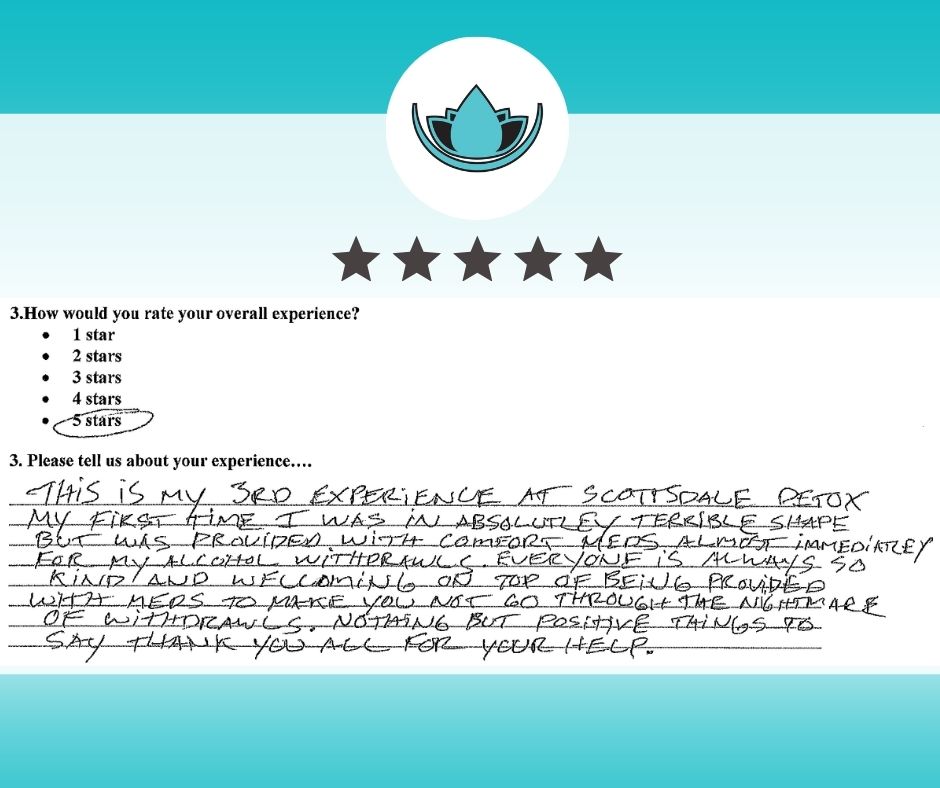 3.How would you rate your overall experience?
• 1 star
• 2 stars
• 3 stars
• 4 stars
• 5 stars
3. Please tell us about your experience....
THIS IS MY 3RD EXPERIENCE AT SCOTTSDALE DETOX
MY FIRST TIME I WAS IN ABSOLUTLEY TERRIBLE SHAPE
BUT WAS PROVIDED WITH COMFORT MEDS ALMOST IMMEDIATLEY
FOR MY ALCOHOL WITHDRAWLS. EVERYONE IS ALWAYS SO
KIND AND WELCOMING ON TOP OF BEING PROVIDED
WITH MEDS TO MAKE YOU NOT GO THROUGH THE NIGHTMARE
OF WITHDRAWLS. NOTHING BUT POSITIVE THINGS TO
SAY THANK YOU ALL FOR YOUR HELP.